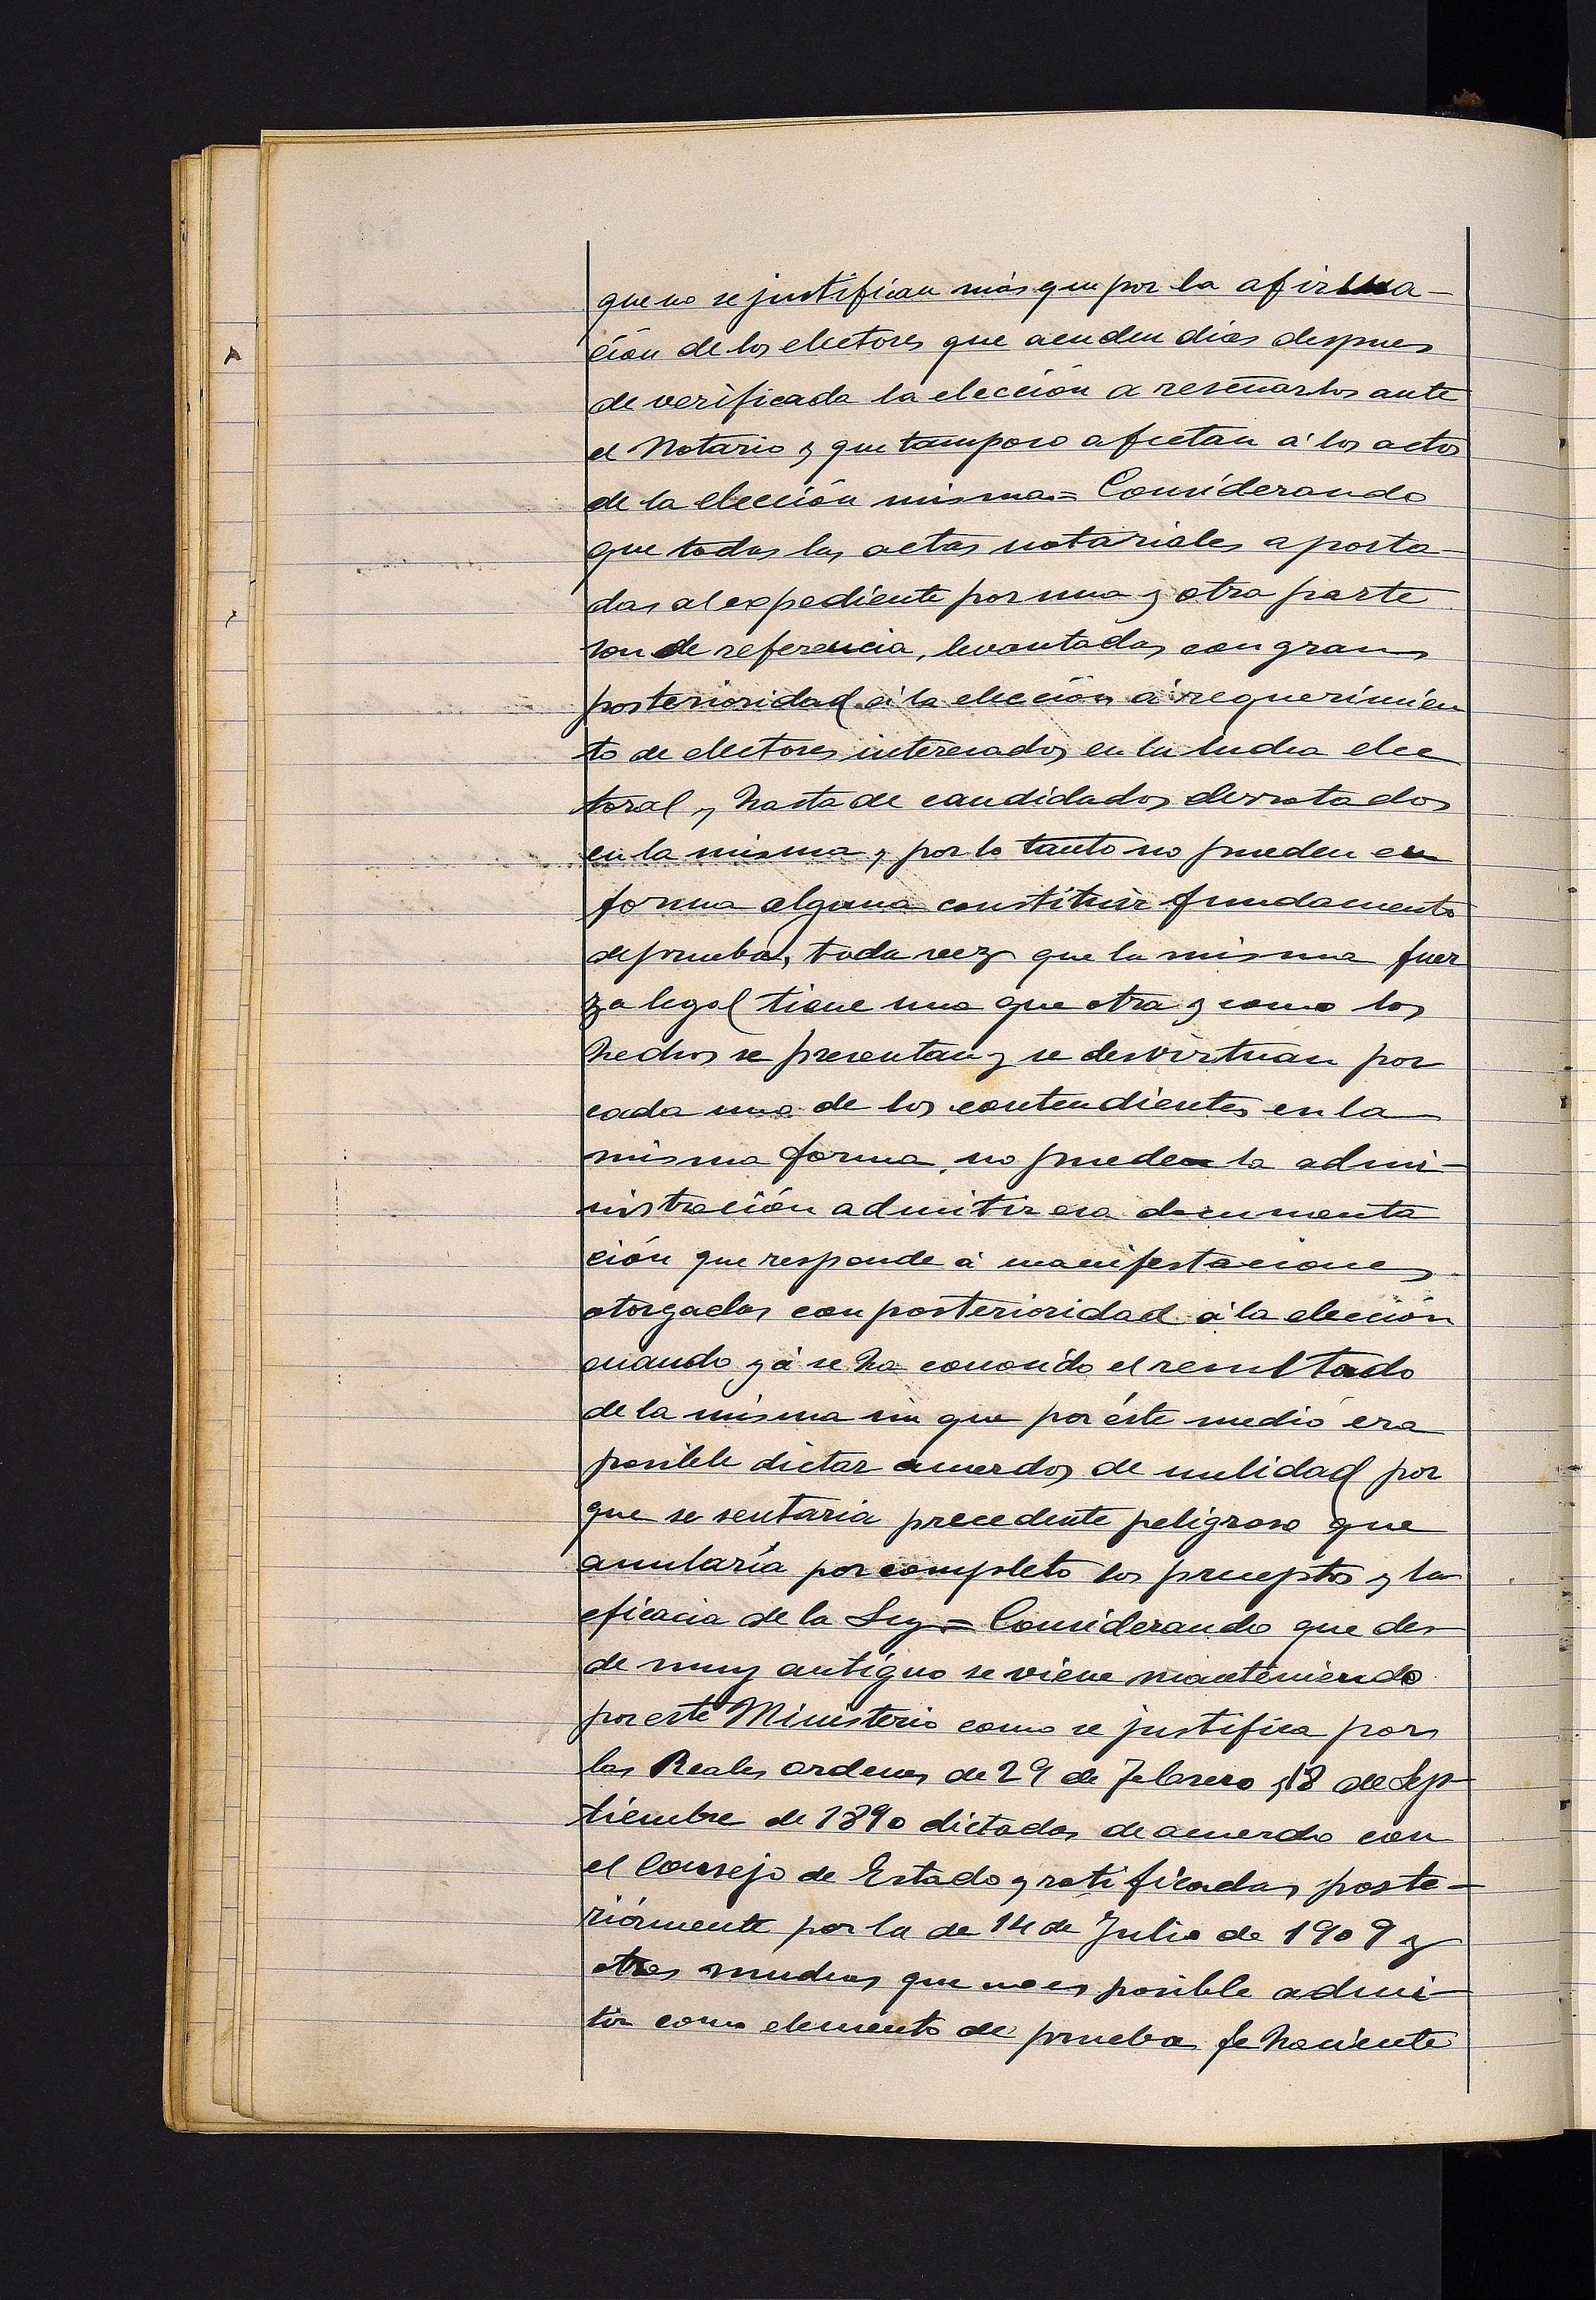 que no se justifican más que por la afirma-
ción de los electores que acuden dias despues
de verificada la elección a reseñarlos ante
el Notario y que tampoco afectan á los actos
de la elección misma = Considerando
que todas las actas notariales aporta-
das al expediente por una y otra parte
son de referencia, levantadas con gran
posterioridad á la elección á requerimien
to de electores interesados en la lucha elec
toral y hasta de candidados derrotados
en la misma y por lo tanto no pueden en
forma alguna constituir fundamento
de prueba, toda vez que la misma fuer
za legal tiene una que otra y como los
hechos se presentan y se desvirtuan por
cada uno de los contendientes en la
misma forma, no puede la admi-
nistración admitir esa documenta
ción que responde á manifestaciones
otorgadas con posterioridad á la elección
cuando yá se ha conocido el resultado
de la misma sin que por éste medio era
posible dictar acuerdos de nulidad por
que se sentaria precedente peligroso que
anularía por completo los preceptos y la
eficacia de la Ley = Considerando que des
de muy antiguo se viene manteniendo
por este Ministerio como se justifica por
las Reales ordenes de 29 de Febrero y 18 de Sep-
tiembre de 1890 dictadas de acuerdo con
el Consejo de Estado y ratificadas poste-
riórmente por la de 14 de Julio de 1909 y
otras muchas que no es posible admi-
tir como elemento de prueba fehaciente